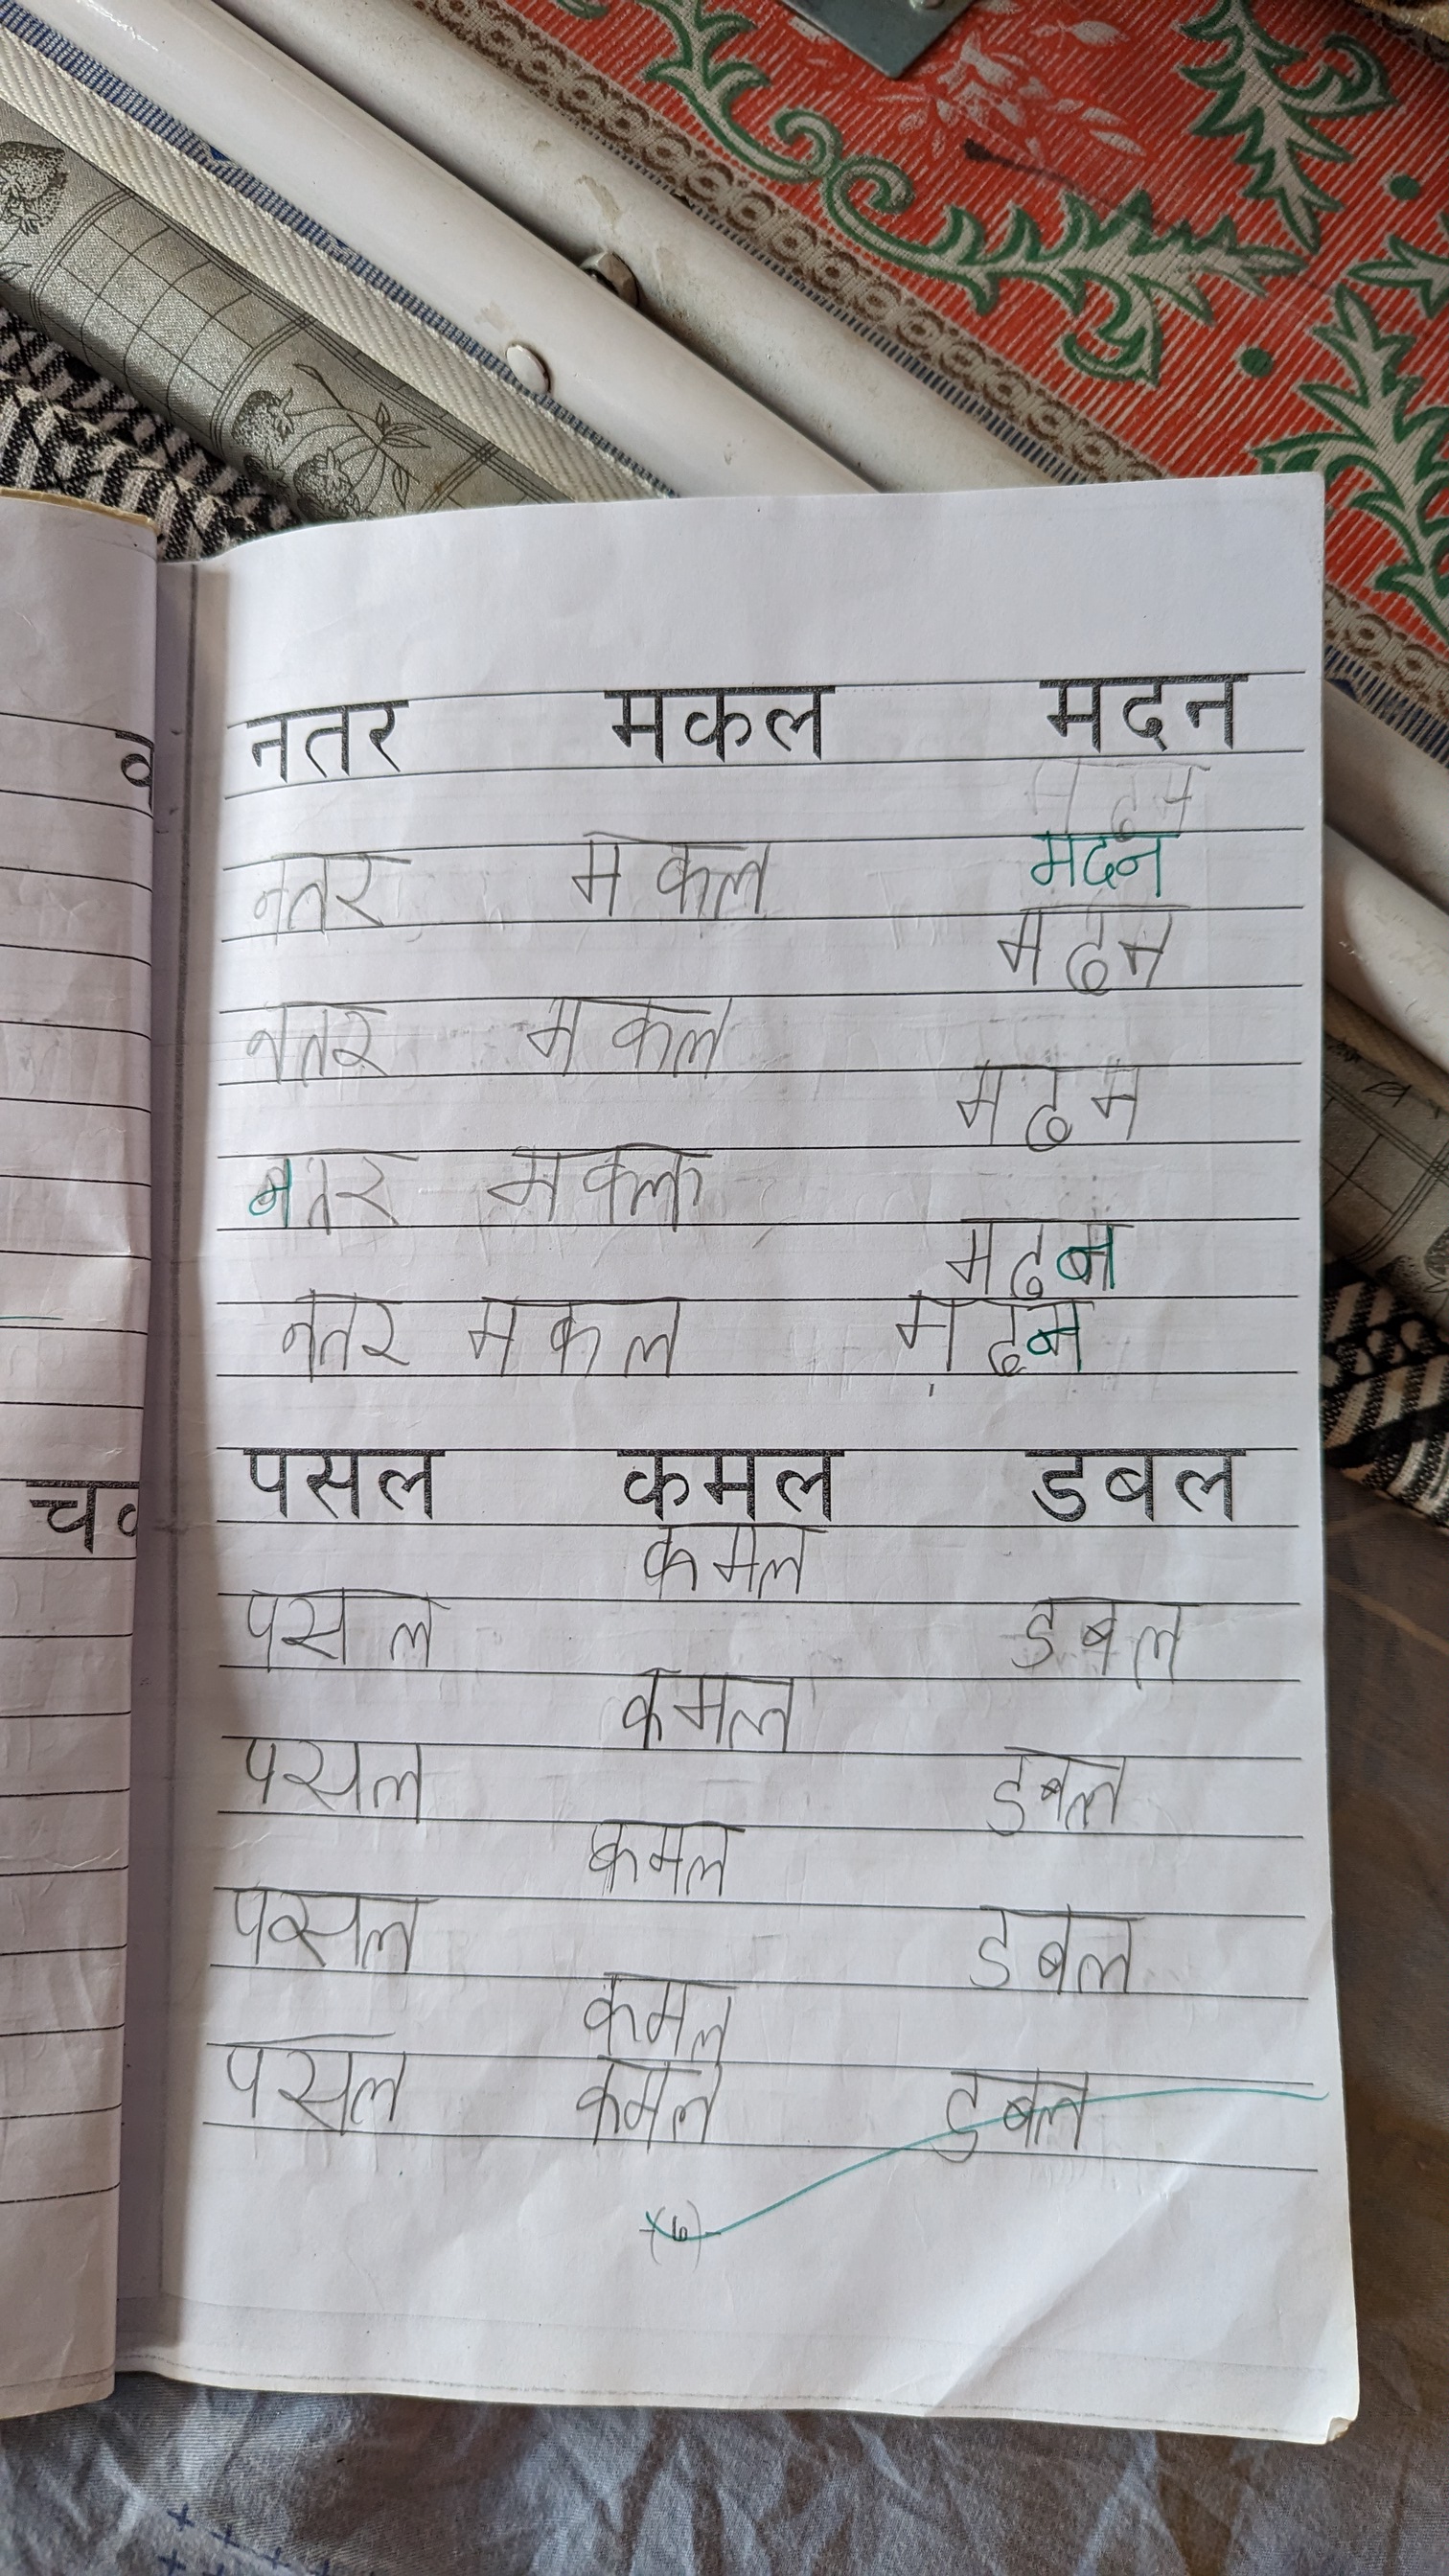 नतर मकल मदन
मदम
नतर मकल मदन
मदन
नतर मकल
मदम
नतर मकल
मदन
नतर मकल मदन
पसल कमल डबल
कमल
पसल डबल
कमल
पसल डबल
कमल
पसल डबल
कमल
पसल कमल डबल
(6)